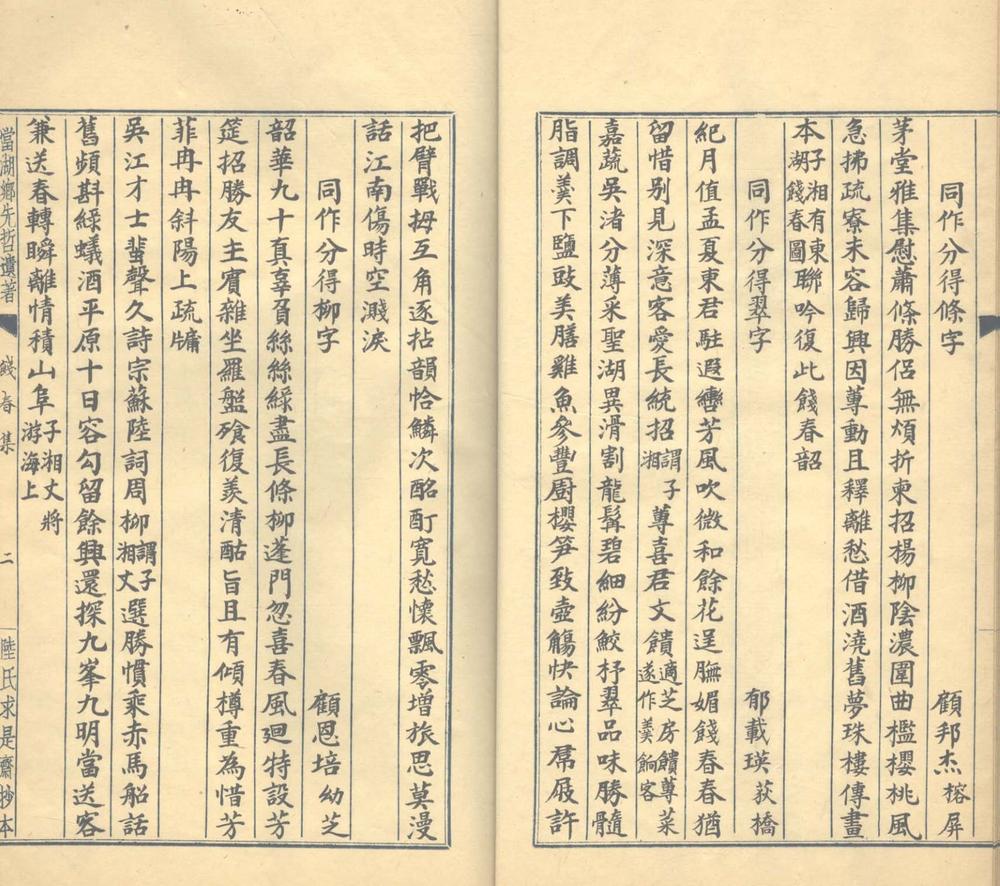 同作分得條字　顧邦杰榕屏
茅堂雅集慰蕭條勝侶無煩折柬招楊柳陰濃圍曲檻櫻桃風
急拂疏寮未容歸興因蓴動且釋離愁借酒澆舊夢珠樓傳畫
本子湘有東湖餞春圖聯吟復此餞春韶
同作分得翠字　郁載瑛荻橋
紀月值孟夏東君駐遐轡芳風吹微和餘花逞膴媚餞春春猶
留惜别見深意客愛長統招謂子湘蓴喜君文饋適芝房饋蓴菜遂作羹餉客
嘉蔬吳渚分薄采聖湖異滑割龍髯碧細紛鮫杼翠品味勝髓
脂調羹下鹽豉美膳雞魚參豐廚櫻笋致壺觴快論心屏屐許
把臂戰拇互角逐拈韻恰鱗次酩酊寬愁懷飄零增旅思莫漫
話江南傷時空濺淚
同作分得柳字　顧恩培幼芝
韶華九十真辜負絲絲綠盡長條柳蓬門忽喜春風廻特設芳
筵招勝友主賓雜坐羅盤飱復羨清酤旨且有傾樽重為惜芳
菲冉冉斜陽上疏牗
吳江才士蜚聲久詩宗蘇陸詞周柳謂子湘丈選勝慣乘赤馬船話
舊頻斟綠蟻酒平原十日容勾留餘興還探九峯九明當送客
兼送春轉瞬離情積山阜子湘丈將游海上
當湖鄉先哲遺著　餞春集　二　陸氏求是齋抄本